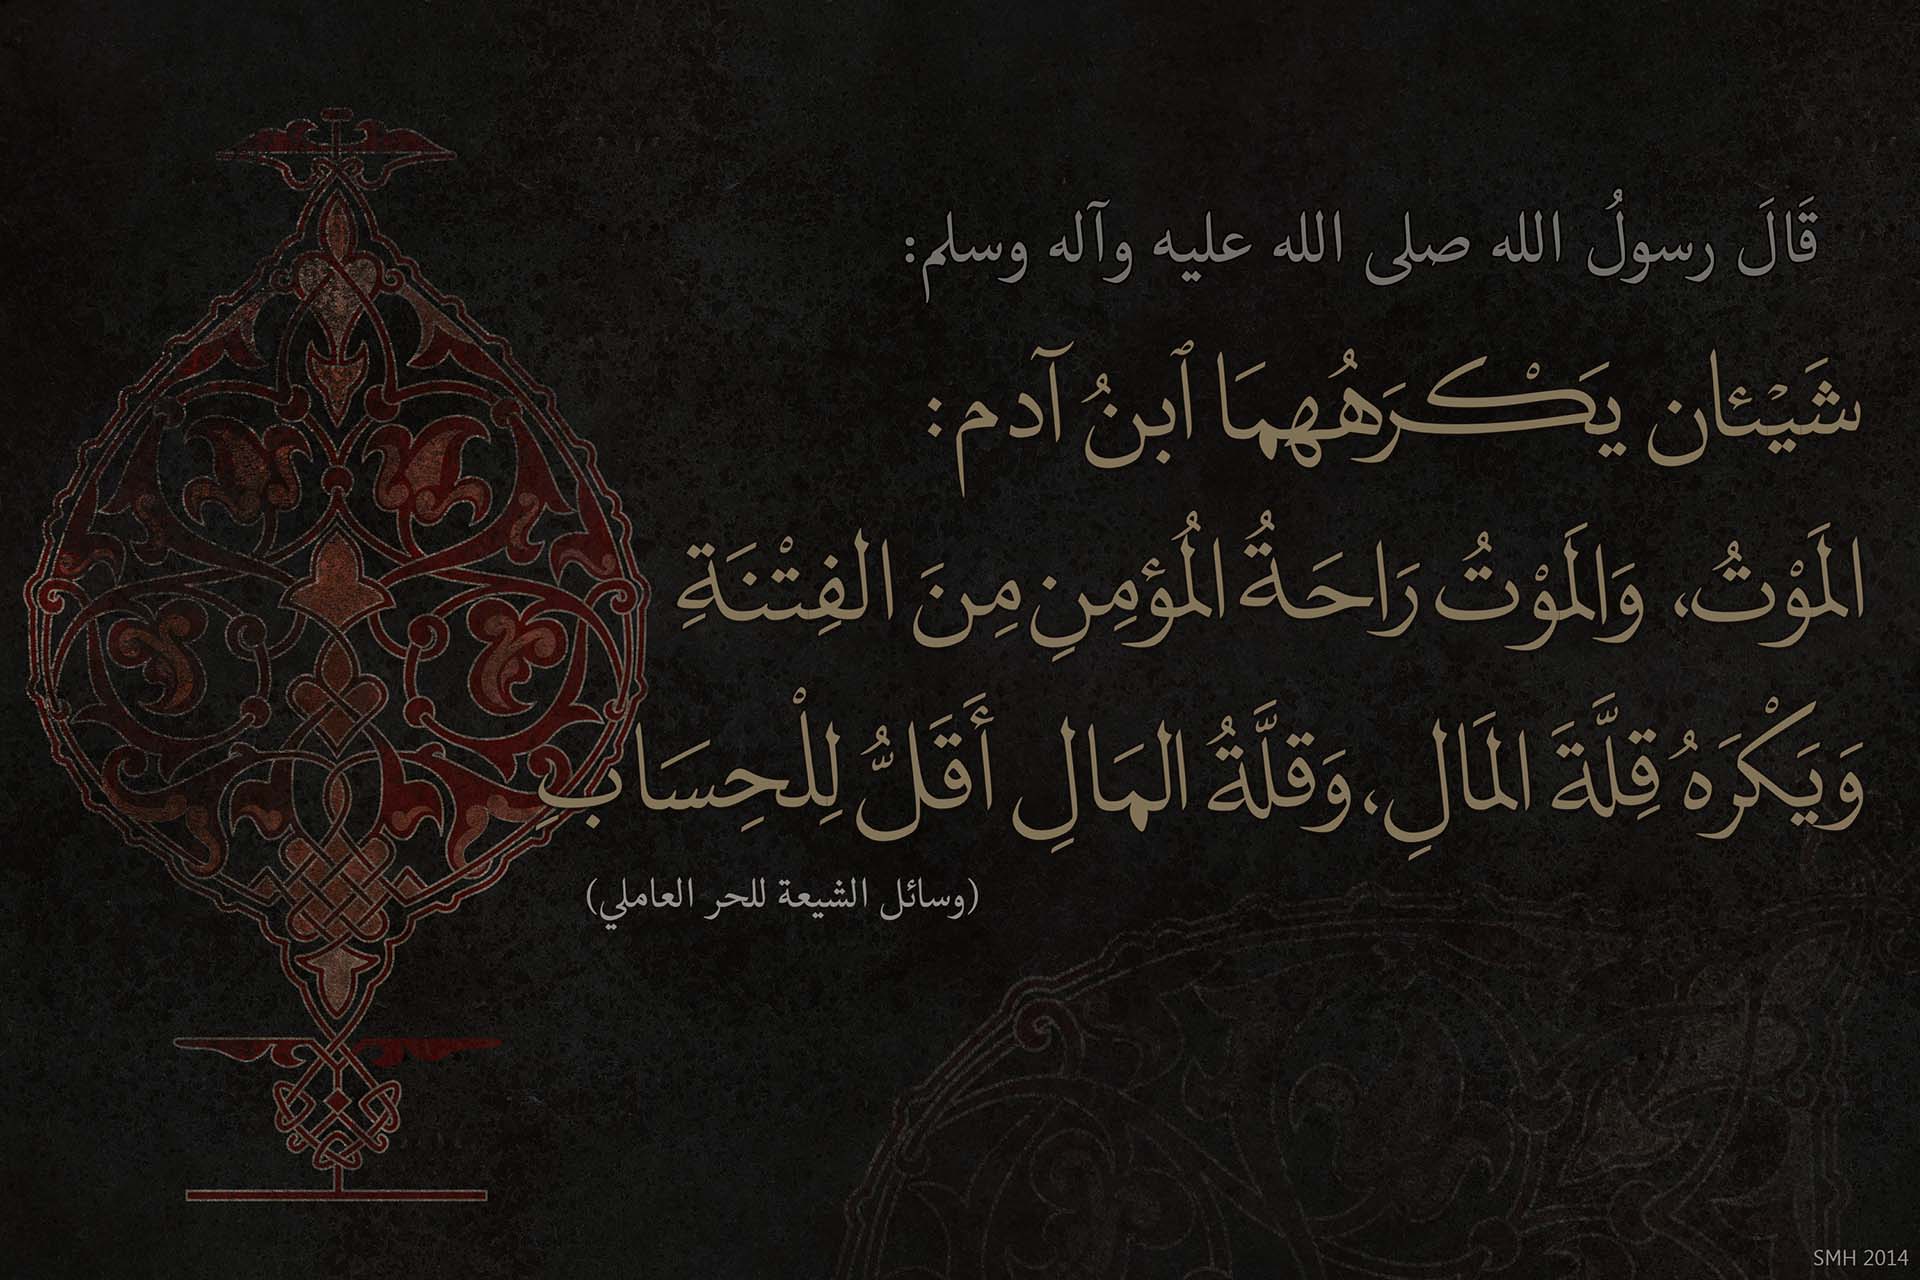 قَالَ رسولُ الله صلى الله عليه وآله وسلم:
شَيْئان يَكْرَهُهمَا ٱبنُ آدم:
المَوْتُ، وَالمَوْتُ رَاحَةُ المُؤمِنِ مِنَ الفِتْنَةِ
وَيَكْرَهُ قِلَّةَ المَالِ، وَقلَّةُ المَالِ أَقَلُّ لِلْحِسَابِ
(وسائل الشيعة للحر العاملي)
SMH 2014